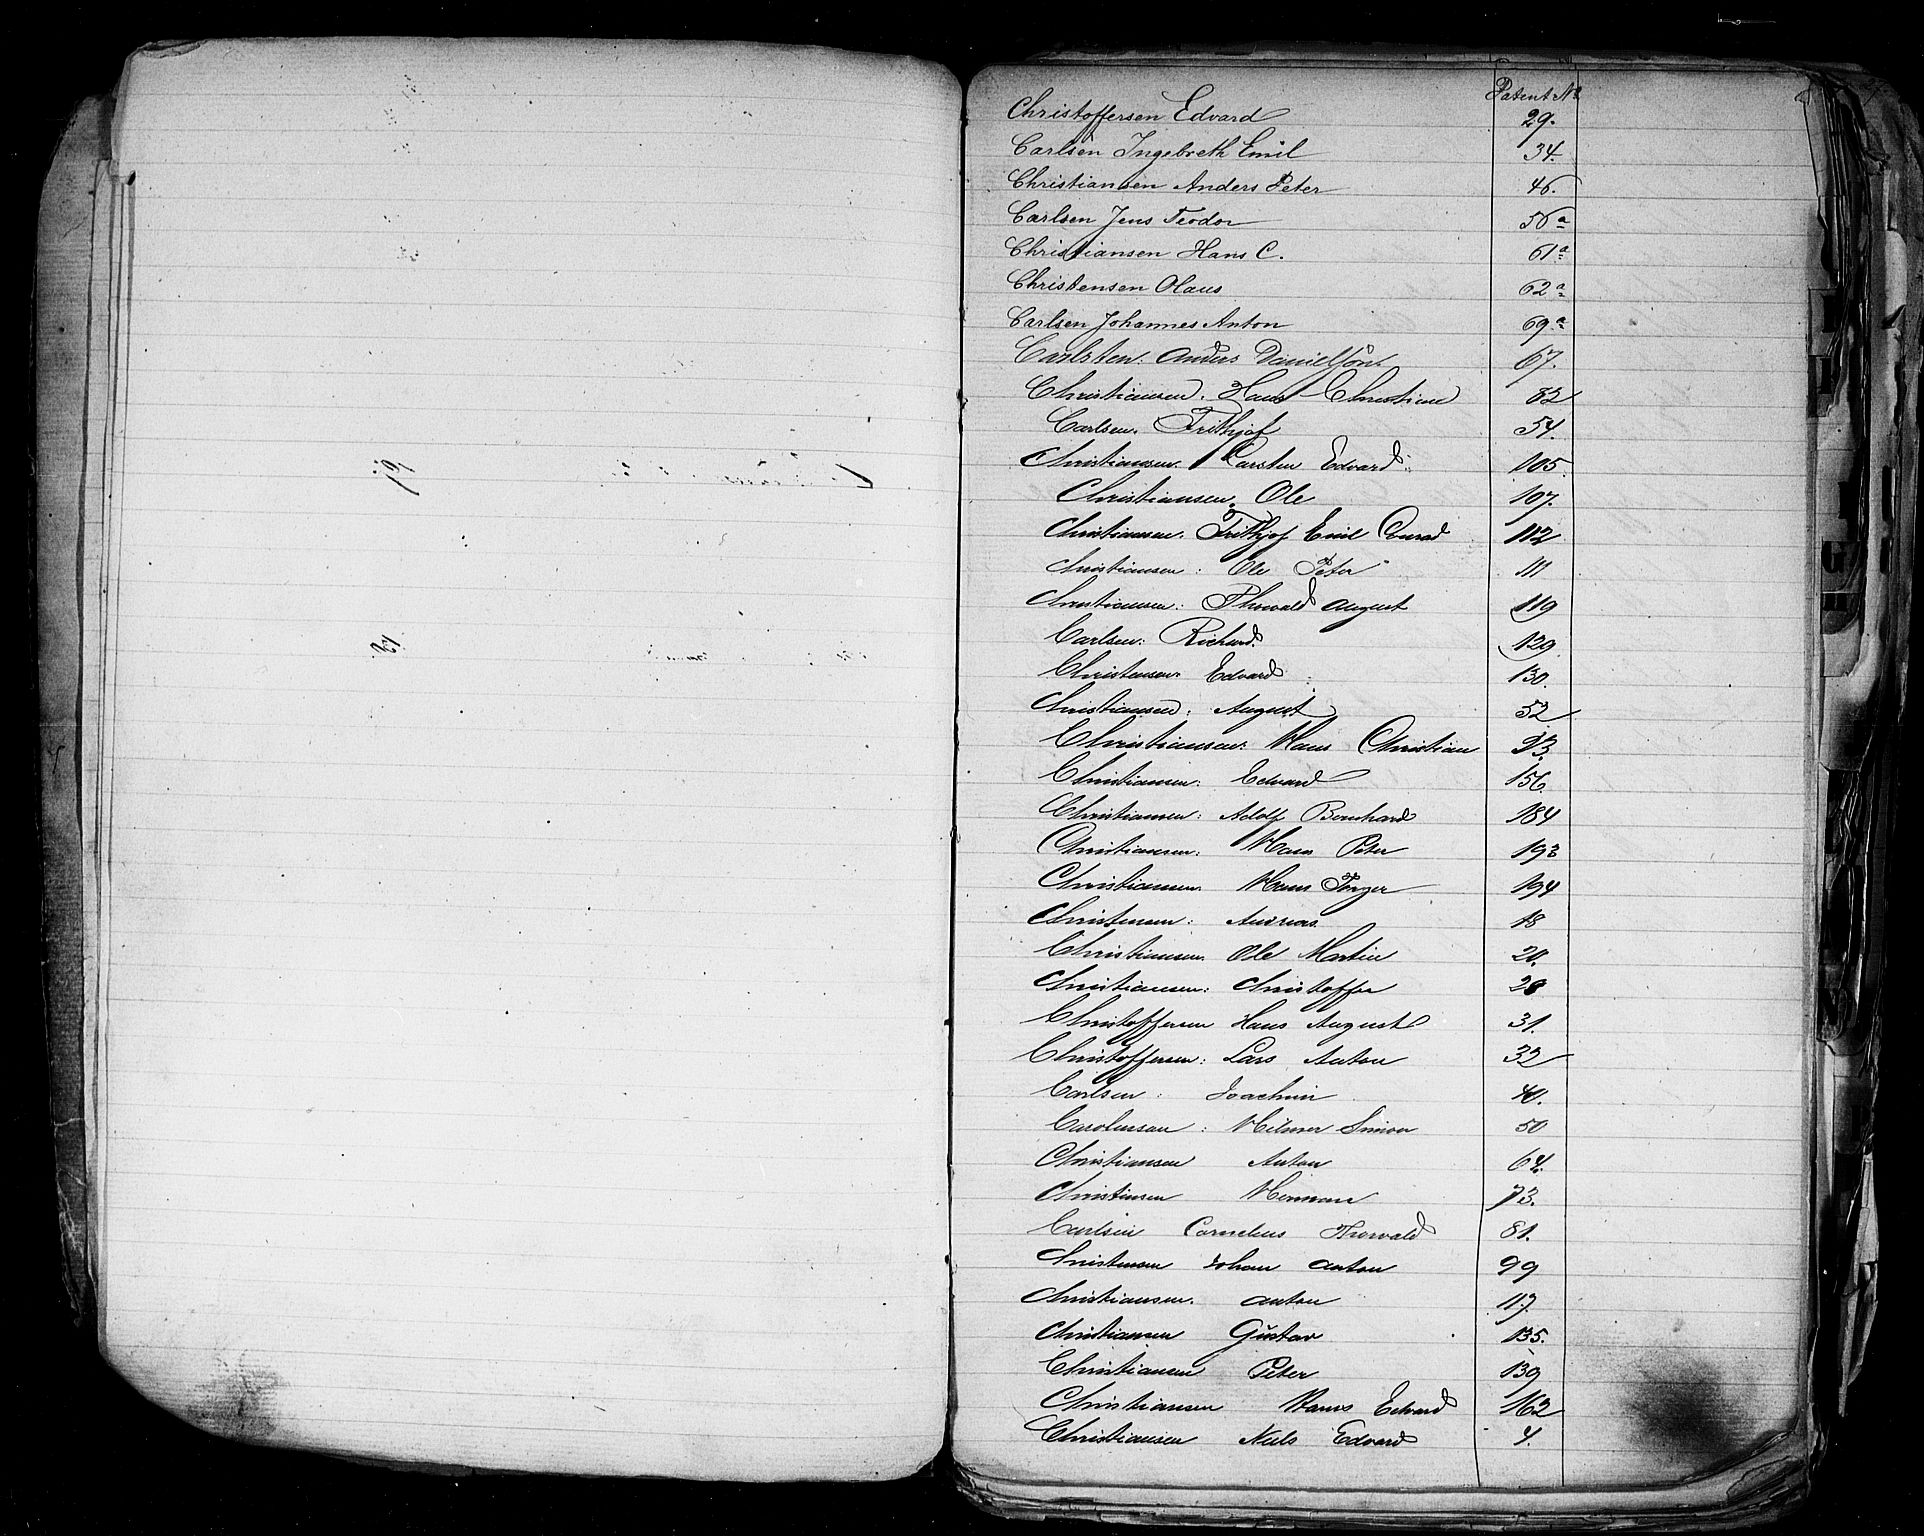 Patent No
Christoffersen Edvard 29.
Carlsen Ingebreth Emil 34.
Christiansen Anders Peter 46.
Carlsen Jens Teodor 56 a
Christiansen Hans C. 61 a
Christensen Olaus 62 a
Carlsen Johannes Anton 69 a
Carlsten. Anders Danielsøn. 67.
Christiansen. Hans Christian 82
Carlsen. Frithjof 54.
Christiansen. Carsten Edvard 105
Christiansen. Ole 107.
Christiansen. Frithjof Emil Conrad 112
Christiansen: Ole Peter 111
Christiansen: Thorvald August 119
Carlsen: Richard. 129
Christensen Edvard 130.
Christiansen: August 52
Christiansen: Hans Christian 93.
Christiansen: Edvard 156.
Christiansen: Adolf Bernhard 184
Christiansen: Hans Peter 193
Christiansen Hans Torger 194
Christensen: Andreas. 18
Christiansen Ole Martin 20.
Christiansen: Christoffer 28
Christoffersen Hans August 31.
Christoffersen: Lars Anton 32
Carlsen: Joachim 40.
Carolusson: Hilmer Simon 50
Christiansen Anton 64.
Christensen Herman 73.
Carlsen Cornelius Thorvald 81.
Christensen Johan Anton 99
Christiansen. Anton 117.
Christiansen Gustav 135.
Christiansen Peter 139
Christiansen Hans Edvard 162
Christiansen Niels Edvard 4.